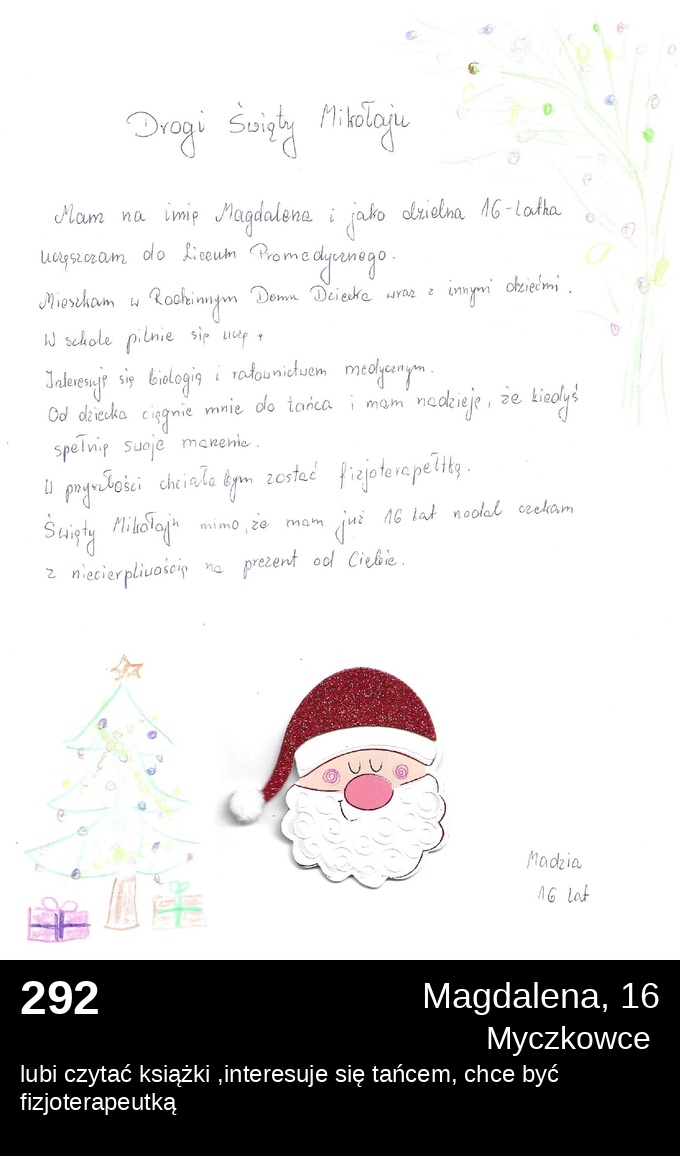 Drogi Święty Mikołaju
Mam na imię Magdalena i jako dzielna 16-latka
uczęszczam do Liceum Promedycznego.
Mieszkam w Rodzinnym Domu Dziecka wraz z innymi dziećmi.
W szkole pilnie się uczę.
Interesuję się biologią i ratownictwem medycznym.
Od dziecka ciągnie mnie do tańca i mam nadzieję, że kiedyś
spełnię swoje marzenie.
W przyszłości chciała bym zostać fizjoterapełtką.
Święty Mikołaju mimo, że mam już 16 lat nadal czekam
z niecierpliwością na prezent od Ciebie.
Madzia
16 lat
292
Magdalena, 16
Myczkowce
lubi czytać książki ,interesuje się tańcem, chce być
fizjoterapeutką